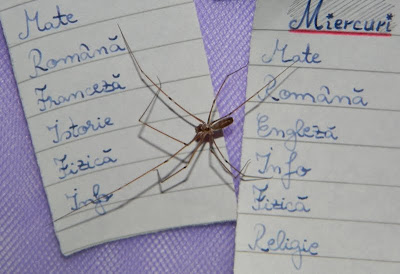 Mate
Română
Franceză
Istorie
Fizică
Info
Miercuri
Mate
Română
Engleză
Info
Fizică
Religie